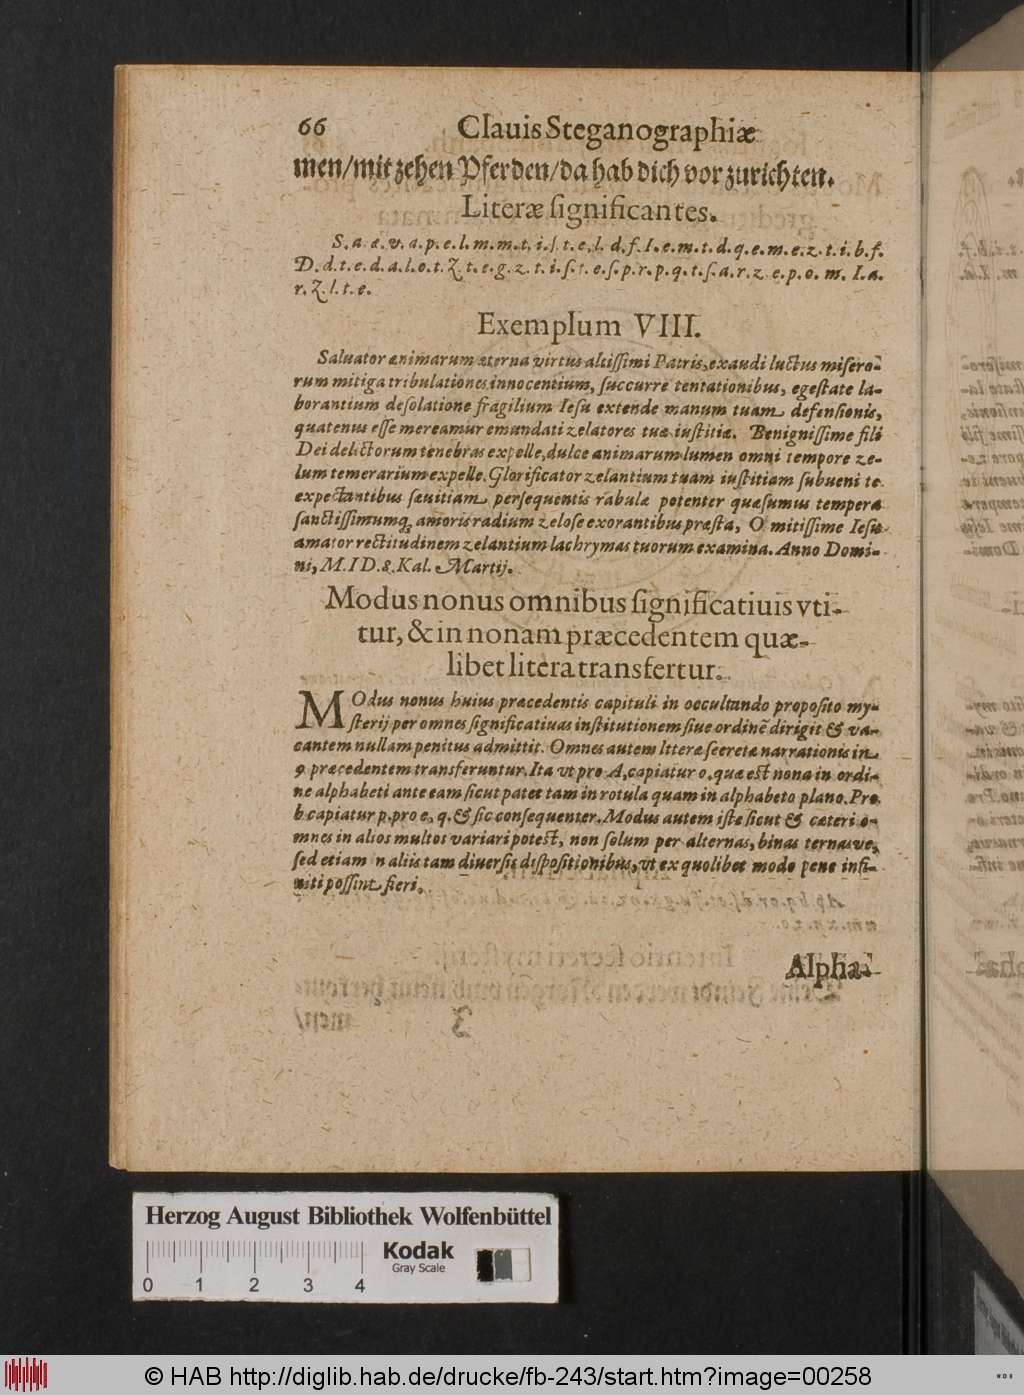 66 Clauis Steganographiæ
men/mit zehen Pferden/da hab dich vor zurichten.
Literæ significantes.
S. a. æ. v. a. p. e. l. m. m. t. i. s. t. e. l. d. f. I. e. m. t. d. q. e. m. e. z. t. i. b. f.
D. d. t. e. d. a. l. o. t. Z. t. e. g. z. t. i. s. t. e. s. p. r. p. q. t. s. a. r. z. e. p. o. m. I. a.
r. Z. l. t. e.
Exemplum VIII.
Saluator animarum æterna virtus altissimi Patris, exaudi luctus misero-
rum mitiga tribulationes innocentium, succurre tentationibus, egestate la-
borantium desolatione fragilium Iesu extende manum tuam defensionis,
quatenus esse mereamur emundati zelatores tuæ iustitiæ. Benignissime fili
Dei delictorum tenebras expelle, dulce animarum lumen omni tempore ze-
lum temerarium expelle. Glorificator zelantium tuam iustitiam subueni te
expectantibus sæuitiam persequentis rabulæ potenter quæsumus tempera
sanctissimumq; amoris radium zelose exorantibus præsta, O mitissime Iesu
amator rectitudinem zelantium lachrymas tuorum examina. Anno Domi-
ni, M. I D. 8. Kal. Martij.
Modus nonus omnibus significatiuis vti-
tur, & in nonam præcedentem quæ-
libet litera transfertur.
MOdus nonus huius præcedentis capituli in occultando proposito my-
sterij per omnes significatiuas institutionem siue ordinē dirigit & va-
cantem nullam penitus admittit. Omnes autem lteræ secretæ narrationis in
9 præcedentem transferuntur. Ita vt pro A, capiatur o, quæ est nona in ordi-
ne alphabeti ante eam sicut patet tam in rotula quam in alphabeto plano. Pro
b capiatur p. pro e, q. & sic consequenter. Modus autem iste sicut & cæteri o-
mnes in alios multos variari potest, non solum per alternas, binas ternasve,
sed etiam n aliis tam diuersis dispositionibus, vt ex quolibet modo pene infi-
niti possint fieri.
Alpha-
Herzog August Bibliothek Wolfenbüttel
Kodak
Gray Scale
0 1 2 3 4
© HAB http://diglib.hab.de/drucke/fb-243/start.htm?image=00258